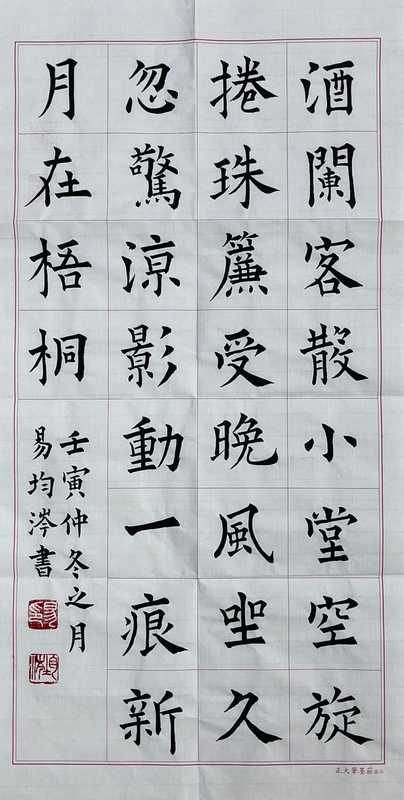 酒闌客散小堂空旋
捲珠簾受晚風坐久
忽驚涼影動一痕新
月在梧桐
壬寅仲冬之月
易均涔書